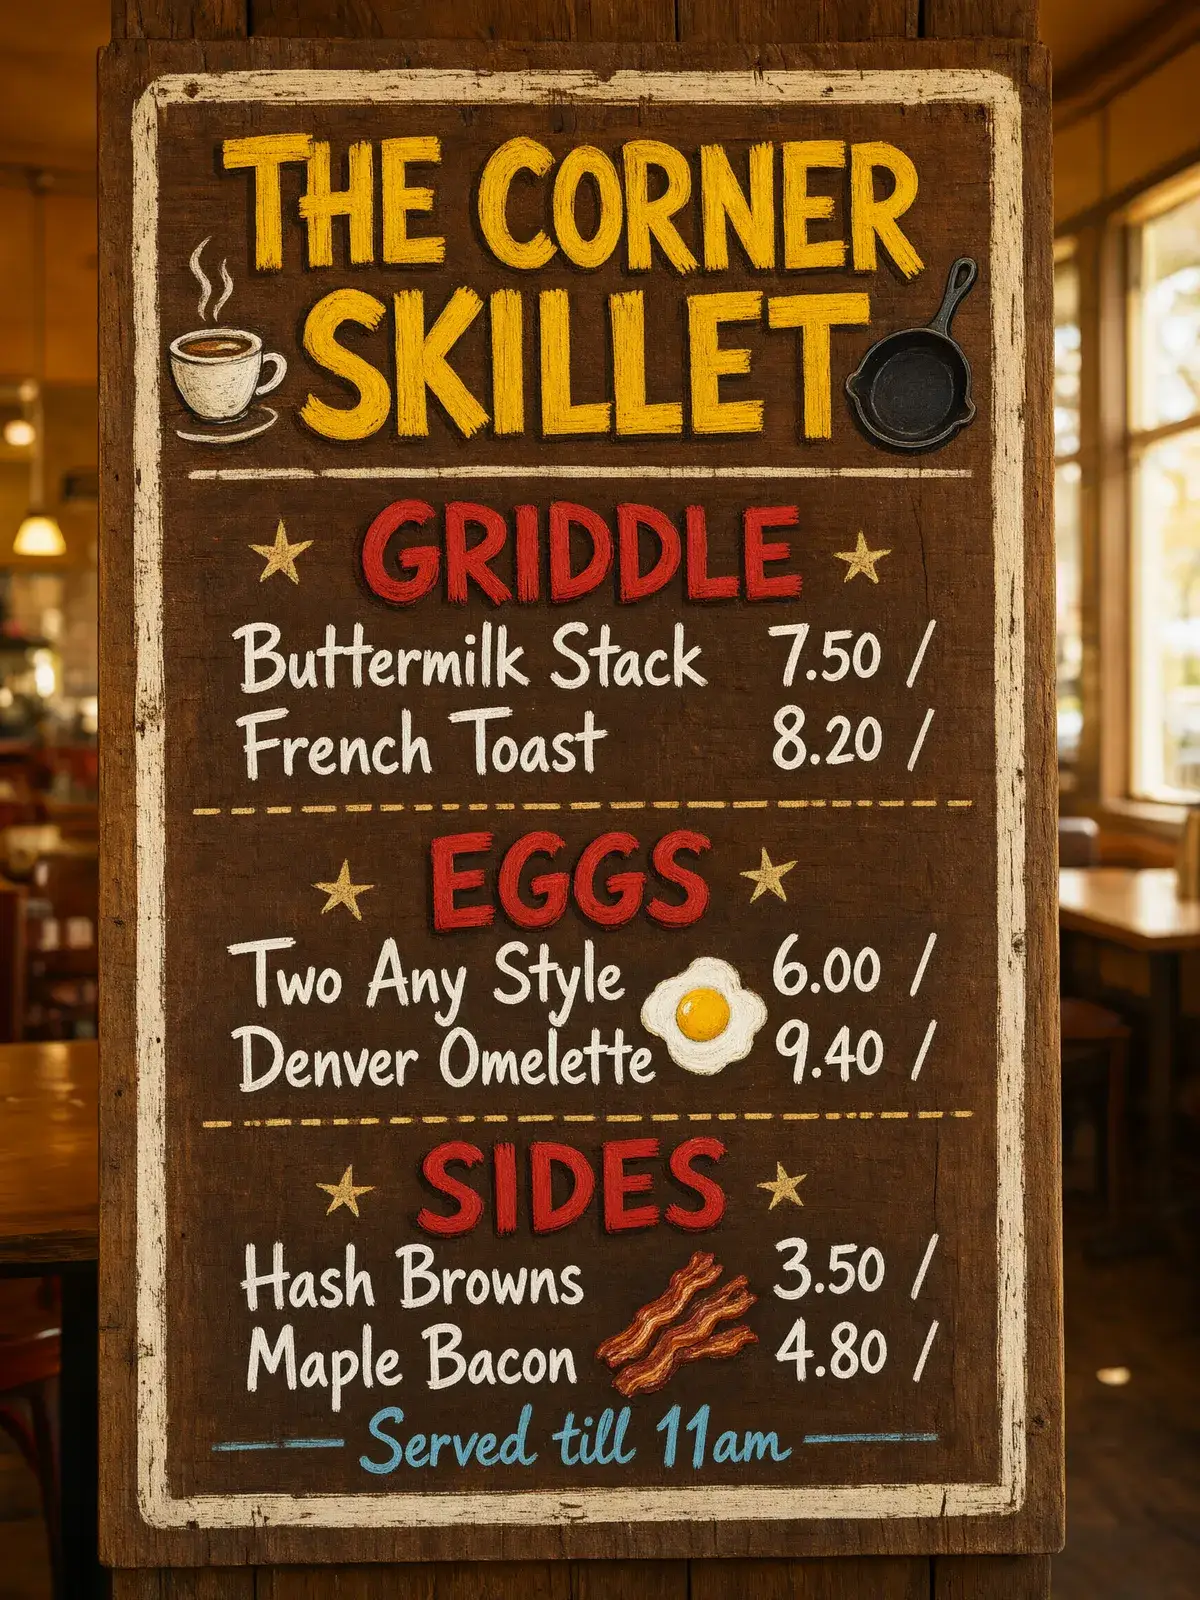 THE CORNER
SKILLET
GRIDDLE
Buttermilk Stack 7.50 /
French Toast 8.20 /
EGGS
Two Any Style 6.00 /
Denver Omelette 9.40 /
SIDES
Hash Browns 3.50 /
Maple Bacon 4.80 /
Served till 11am